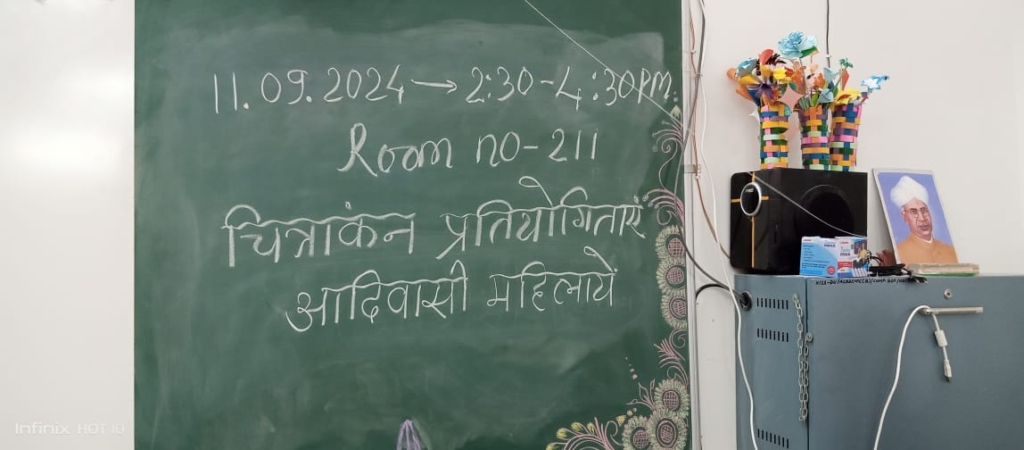 11.09.2024 → 2:30-4:30PM
Room no-211
चित्रांकंन प्रतियोगिताएं
आदिवासी महिलायें
Infinix HOT 10